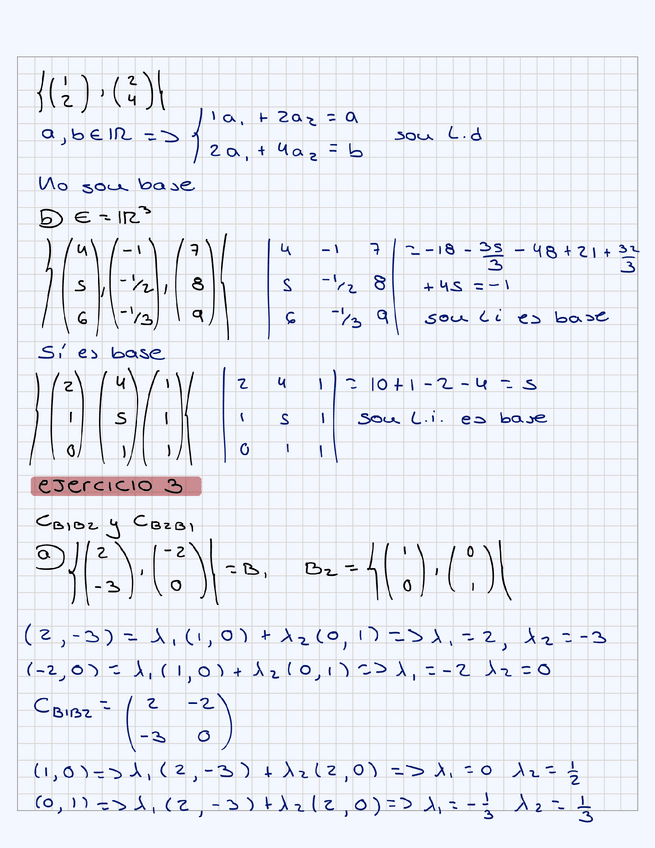 {(1 2), (2 4)}
a, b ∈ IR => { 1a₁ + 2a₂ = a
2a₁ + 4a₂ = b
son L.d
No son base
b) E = IR³
{(4 5 6), (-1 -1/2 -1/3), (7 8 9)} | 4 -1 7 | = -18 - 35/3 - 48 + 21 + 32/3
| 5 -1/2 8 | + 45 = -1
| 6 -1/3 9 | son Li es base
Sí es base
{(2 1 0) (4 5 1) (1 1 1)} | 2 4 1 | = 10+1-2-4 = 5
| 1 5 1 | son L.i. es base
| 0 1 1 |
ejercicio 3
C_B1B2 y C_B2B1
a) {(2 -3), (-2 0)} = B₁ B₂ = {(1 0), (0 1)}
(2,-3) = λ₁(1,0) + λ₂(0,1) => λ₁ = 2, λ₂ = -3
(-2,0) = λ₁(1,0) + λ₂(0,1) => λ₁ = -2 λ₂ = 0
C_B1B2 = (2 -2
-3 0)
(1,0) => λ₁(2,-3) + λ₂(2,0) => λ₁ = 0 λ₂ = 1/2
(0,1) => λ₁(2,-3) + λ₂(2,0) => λ₁ = -1/3 λ₂ = 1/3